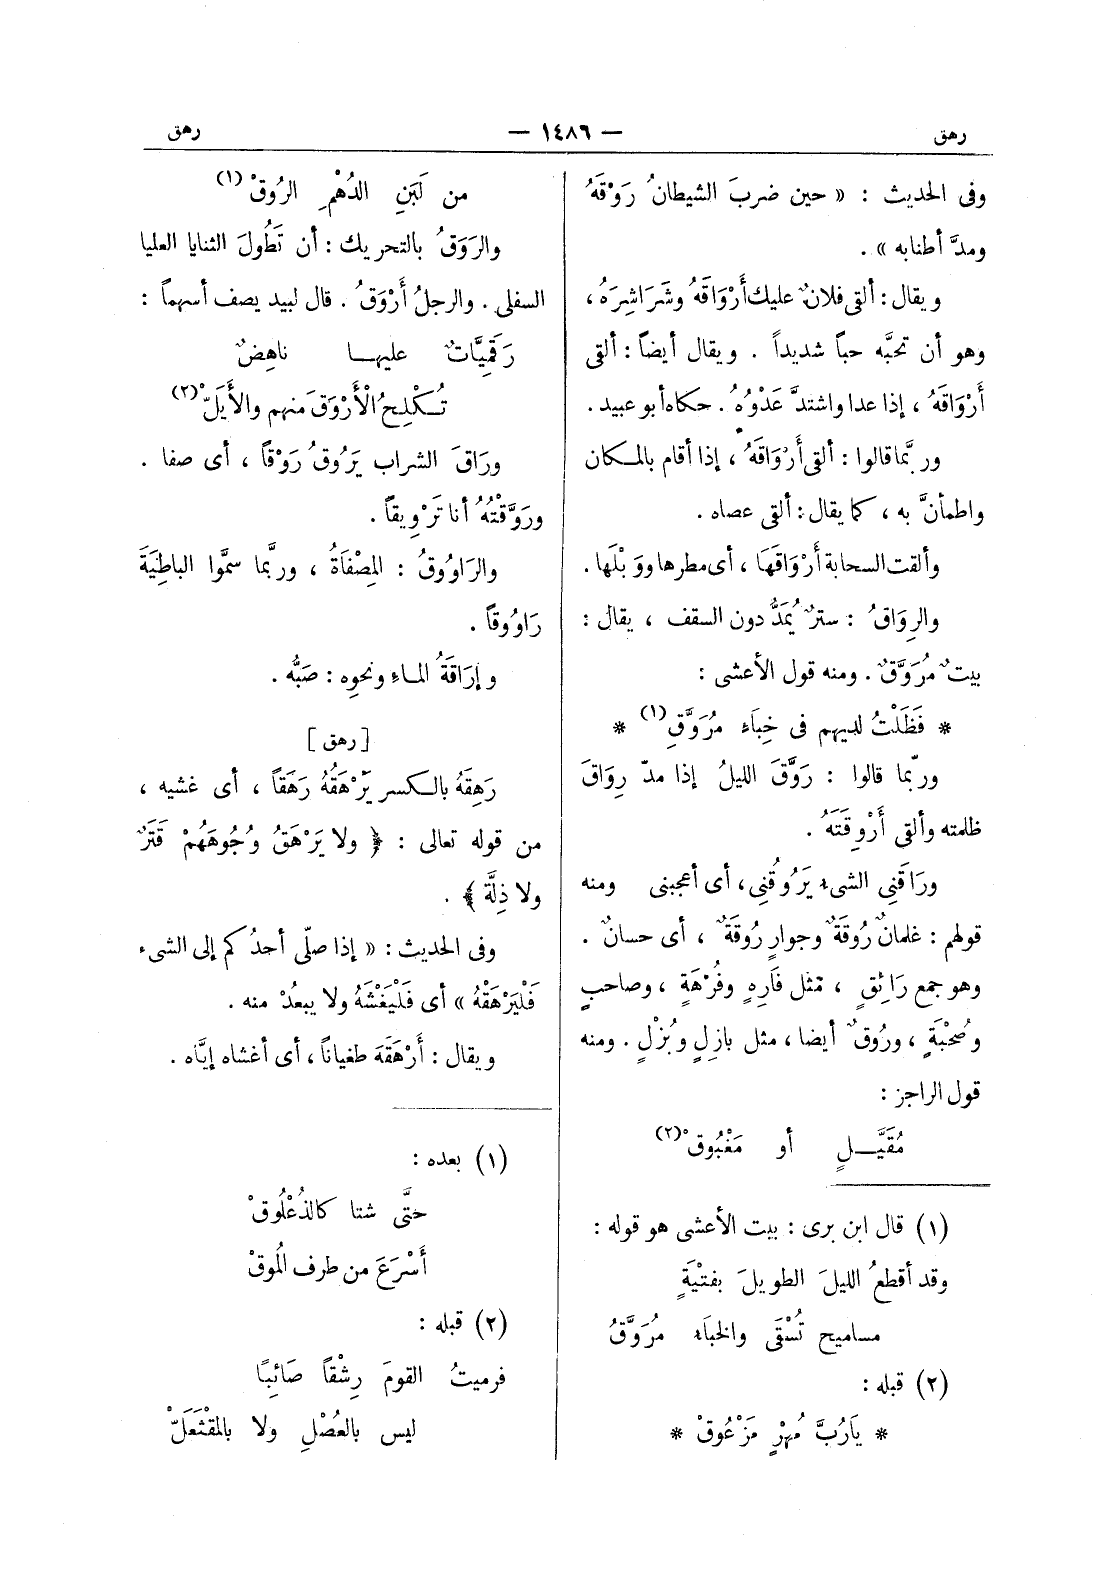 رهق — ١٤٨٦ — رهق
وفى الحديث : « حين ضربَ الشيطانُ رَوْقَهُ
ومدَّ أطنابه » .
ويقال : ألقى فلانٌ عليك أَرْوَاقَهُ وشَرَاشِرَهُ ،
وهو أن تحبَّه حباً شديداً . ويقال أيضاً : ألقى
أَرْوَاقَهُ ، إذا عدا واشتدَّ عَدْوُهُ . حكاه أبو عبيد .
وربَّما قالوا : ألقى أَرْوَاقَهُ ، إذا أقام بالمكان
واطمأنَّ به ، كما يقال : ألقى عصاه .
وألقت السحابة أَرْوَاقَهَا ، أى مطرها ووَبْلَها .
والرِوَاقُ : سترٌ يُمَدُّ دون السقف ، يقال :
بيتٌ مُرَوَّقٌ . ومنه قول الأعشى :
* فَظَلْتُ لديهم فى خِبَاءٍ مُرَوَّقِ (١) *
وربّما قالوا : رَوَّقَ الليلُ إذا مدّ رِوَاقَ
ظلمته وألقى أَرْوِقَتَهُ .
ورَاقَنِى الشىءُ يَرُوقُنِى ، أى أعجبنى ومنه
قولهم : غلمانٌ رُوقَةٌ وجوارٍ رُوقَةٌ ، أى حسانٌ .
وهو جمع رَائِقٍ ، مثل فَارِهٍ وفُرْهَةٍ ، وصاحبٍ
وصُحْبَةٍ ، ورُوقٌ أيضا ، مثل بازِلٍ وبُزْلٍ . ومنه
قول الراجز :
مُقَيَّلٍ أو مَغْبُوقْ (٢)
(١) قال ابن برى : بيت الأعشى هو قوله :
وقد أقطعُ الليلَ الطويلَ بفتْيَةٍ
مساميح تُسْقَى والخبَاءُ مُرَوَّقُ
(٢) قبله :
* يَارُبَّ مُهْرٍ مَزْعُوقْ *
من لَبَنِ الدُهْمِ الرُوقْ (١)
والرَوَقُ بالتحريك : أن تَطُولَ الثنايا العليا
السفلى . والرجلُ أَرْوَقُ . قال لبيد يصف أسهماً :
رَقَمِيَّاتٌ عليها ناهِضٌ
تُكْلِحُ الْأَرْوَقَ منهم والأَيَلّْ (٢)
ورَاقَ الشراب يَرُوقُ رَوْقاً ، أى صفا .
ورَوَّقْتُهُ أنا تَرْوِيقاً .
والرَاوُوقُ : المِصْفَاةُ ، وربَّما سمَّوا الباطِيَةَ
رَاوُوقاً .
وإرَاقَةُ الماءِ ونحوِه : صَبُّه .
[ رهق ]
رَهِقَهُ بالكسر يَرْهَقُهُ رَهَقاً ، أى غشيه ،
من قوله تعالى : ﴿ ولا يَرْهَقُ وُجُوهَهُمْ قَتَرٌ
ولا ذِلَّة ﴾ .
وفى الحديث : « إذا صلّى أحدُكم إلى الشىء
فَلْيَرْهَقْهُ » أى فَلْيَغْشَهُ ولا يبعدْ منه .
ويقال : أَرْهَقَهُ طغياناً ، أى أغشاه إيَّاه .
(١) بعده :
حتَّى شتا كالذُعْلُوقْ
أَسْرَعَ من طرف المُوقْ
(٢) قبله :
فرميتُ القومَ رِشْقاً صَائِبًا
ليس بالعُصْلِ ولا بالمقْثَعَلّْ